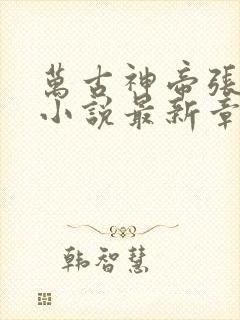 萬古神帝張
小說最新章
韩智慧